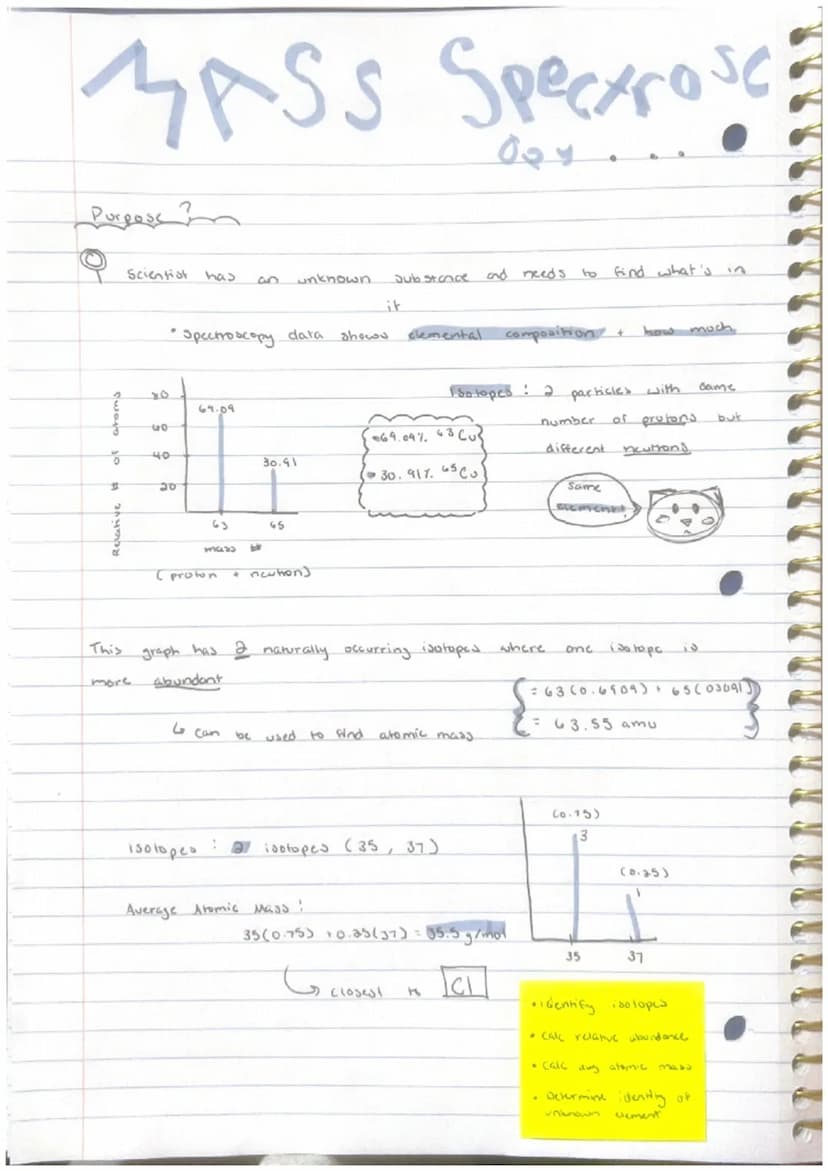 MASS Spectrosc
opy ...
Purpose?
Scientist has an unknown substance and needs to find what's in
it
• Spectroscopy data shows elemental composition + how much
Relative # of atoms
80
60
40
20
69.09
30.91
63
65
mass #
(proton + neutron)
69.09% 63Cu
30.91% 65Cu
Isotopes : 2 particles with same
number of protons but
different neutrons
Same
element!
This graph has 2 naturally occurring isotopes where one isotope is
more abundant
↳ can be used to find atomic mass
= 63(0.6909) + 65(03091)
= 63.55 amu
Isotopes : 2 isotopes (35, 37)
Average Atomic Mass :
35(0.75) + 0.25(37) = 35.5 g/mol
↳ closest to Cl
(0.75)
3
(0.25)
1
35
37
• identify isotopes
• calc relative abundance
• calc avg atomic mass
• Determine identity of
unknown element